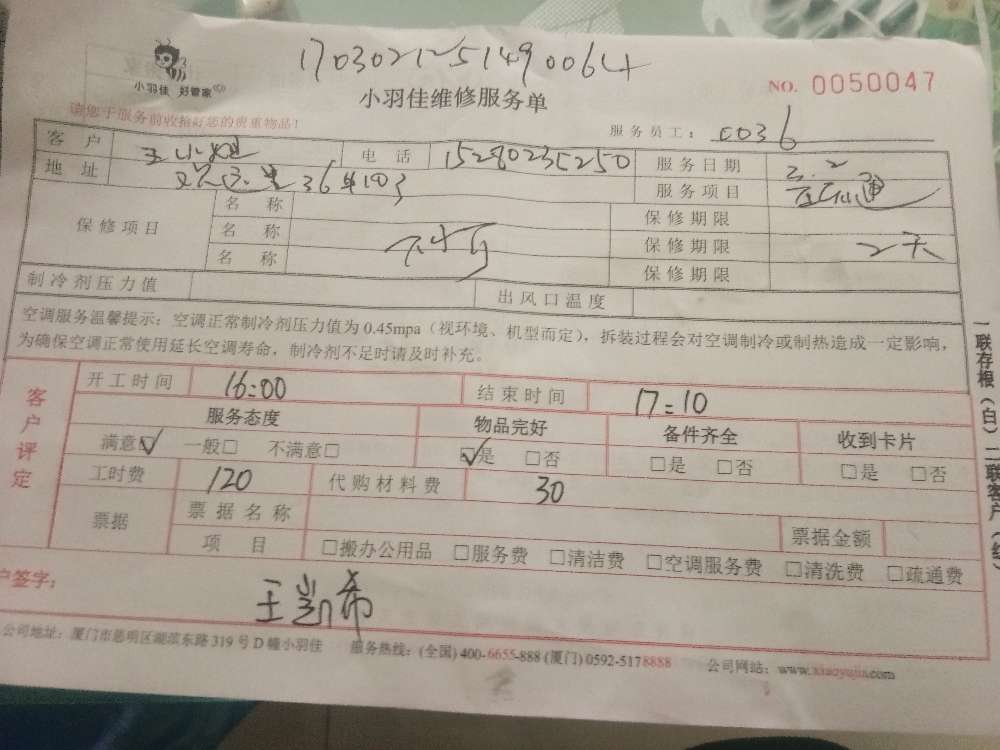 1703021251490064
小羽佳 好管家
小羽佳维修服务单
NO. 0050047
请您于服务前收拾好您的贵重物品!
服务员工: 0036
客户 王小姐 电话 15280235250 服务日期 3.2
地址 36 103 服务项目 通
保修项目 名称 保修期限
名称 保修期限 2天
名称 保修期限
制冷剂压力值 出风口温度
空调服务温馨提示:空调正常制冷剂压力值为0.45mpa(视环境、机型而定),拆装过程会对空调制冷或制热造成一定影响,
为确保空调正常使用延长空调寿命,制冷剂不足时请及时补充。
客户评定
开工时间 16:00 结束时间 17:10
服务态度 物品完好 备件齐全 收到卡片
满意☑ 一般□ 不满意□ ☑是 □否 □是 □否 □是 □否
工时费 120 代购材料费 30
票据 票据名称 票据金额
项目 □搬办公用品 □服务费 □清洁费 □空调服务费 □清洗费 □疏通费
户签字: 王凯希
公司地址:厦门市思明区湖滨东路319号D幢小羽佳 服务热线:(全国)400-6655-888 (厦门)0592-5178888 公司网站:www.xiaoyujia.com
一联存根(白)二联客户(红)